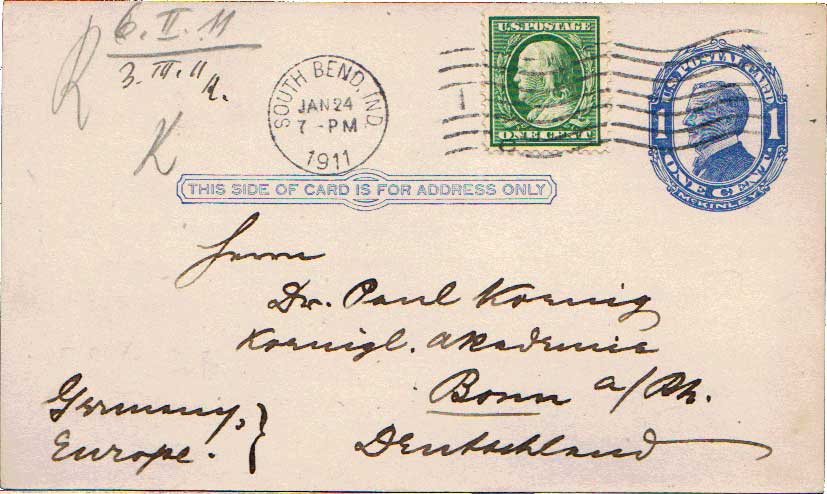 6. II. 11
3. III. 11
R.
R
K
SOUTH BEND, IND.
JAN 24
7 - PM
1911
U.S. POSTAGE
ONE CENT
U.S. POSTAL CARD
1 1
ONE CENT
McKINLEY
THIS SIDE OF CARD IS FOR ADDRESS ONLY
Herrn
Dr. Paul Koenig
Koenigl. Akademie
Bonn a/Rh.
Deutschland
Germany,
Europe.